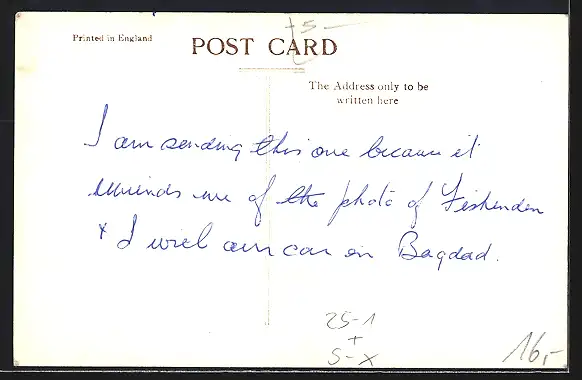 +5-
Printed in England
POST CARD
The Address only to be
written here
I am sending this one because it
reminds me of the photo of Fishenden
& I with our car in Bagdad.
25-1
+
S-X
16,-